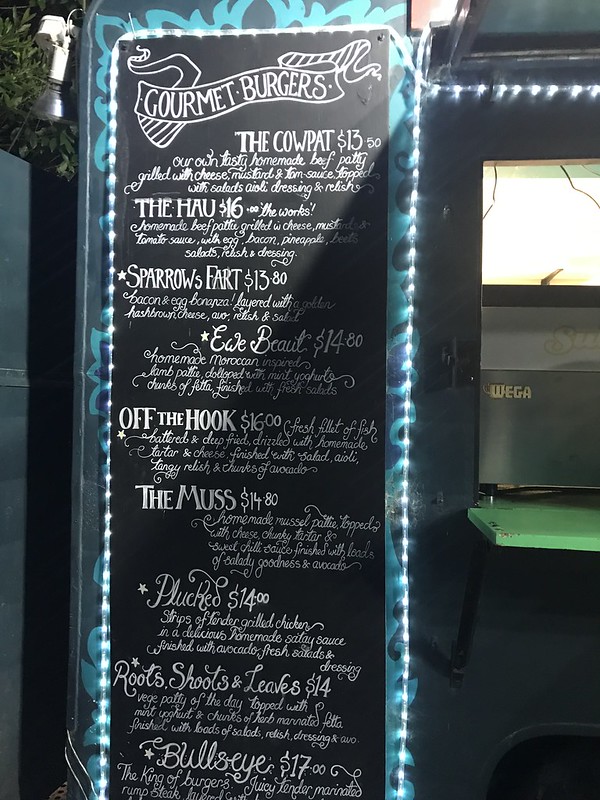 GOURMET · BURGERS ·
THE COWPAT $13.50
our own tasty homemade beef patty
grilled with cheese, mustard & tom-sauce topped
with salads aioli dressing & relish
THE HAU $16.00 'the works'!
homemade beef pattie grilled w cheese, mustard &
tomato sauce, with egg, bacon, pineapple, beets
salads, relish & dressing.
SPARROWS FART $13.80
bacon & egg bonanza! layered with a golden
hashbrown, cheese, avo, relish & salad
Ewe Beaut $14.80
homemade Moroccan inspired
lamb pattie, dolloped with mint yoghurt &
chunks of fetta, finished with fresh salads
OFF THE HOOK $16.00 (fresh fillet of fish
battered & deep fried, drizzled with homemade
tartar & cheese, finished with salad, aioli,
tangy relish & chunks of avocado
THE MUSS $14.80
homemade mussel pattie, topped
with cheese, chunky tartar &
sweet chilli sauce finished with loads
of salady goodness & avocado
Plucked $14.00
Strips of tender grilled chicken
in a delicious homemade satay sauce
finished with avocado, fresh salads &
dressing
Roots, Shoots & Leaves $14
vege patty of the day topped with
mint yoghurt & chunks of herb marinated fetta
finished with loads of salads, relish, dressing & avo.
Bullseye $17.00
The King of burgers. Juicy tender, marinated
rump steak, layered with
WEGA